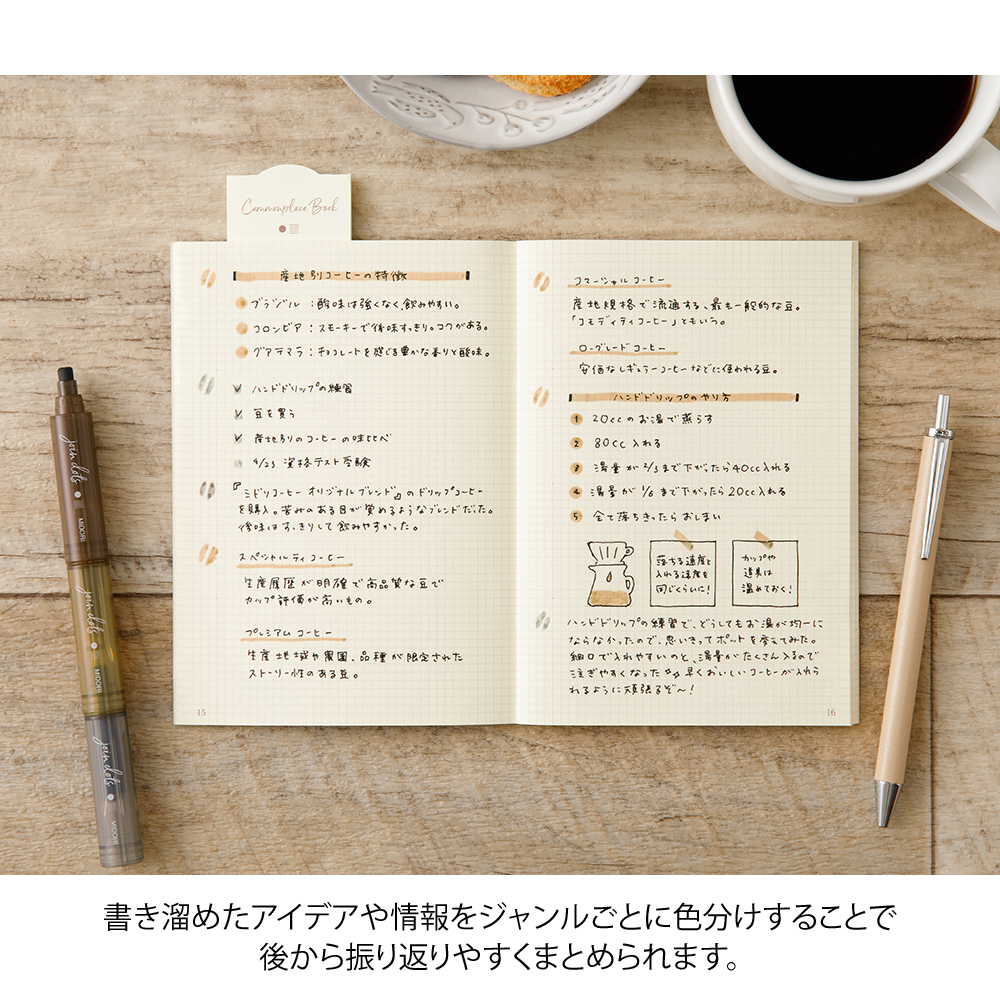 Commonplace Book
産地別コーヒーの特徴
ブラジル：酸味は強くなく、飲みやすい。
コロンビア：スモーキーで後味すっきり。コクがある。
グアテマラ：チョコレートを感じる豊かな香りと酸味。
ハンドドリップの練習
豆を買う
産地別のコーヒーの味比べ
9/23 資格テスト受験
『ミドリコーヒー オリジナルブレンド』のドリップコーヒー
を購入。苦みのある目が覚めるようなブレンドだった。
後味はすっきりして飲みやすかった。
スペシャルティコーヒー
生産履歴が明確で高品質な豆で
カップ評価が高いもの。
プレミアムコーヒー
生産地域や農園、品種が限定された
ストーリー性のある豆。
15
コマーシャルコーヒー
産地規格で流通する、最も一般的な豆。
「コモディティコーヒー」ともいう。
ローグレードコーヒー
安価なレギュラーコーヒーなどに使われる豆。
ハンドドリップのやり方
1 20ccのお湯で蒸らす
2 80cc入れる
3 湯量が2/3まで下がったら40cc入れる
4 湯量が1/6まで下がったら20cc入れる
5 全て落ちきったらおしまい
落ちる速度と
入れる速度を
同じくらいに!
カップや
道具は
温めておく!
ハンドドリップの練習で、どうしてもお湯が均一に
ならなかったので、思いきってポットを変えてみた。
細口で入れやすいのと、湯量がたくさん入るので
注ぎやすくなった♪♪早くおいしいコーヒーが入れら
れるように頑張るぞ〜!
16
join dots
MIDORI
join dots
MIDORI
join dots
MIDORI
書き溜めたアイデアや情報をジャンルごとに色分けすることで
後から振り返りやすくまとめられます。